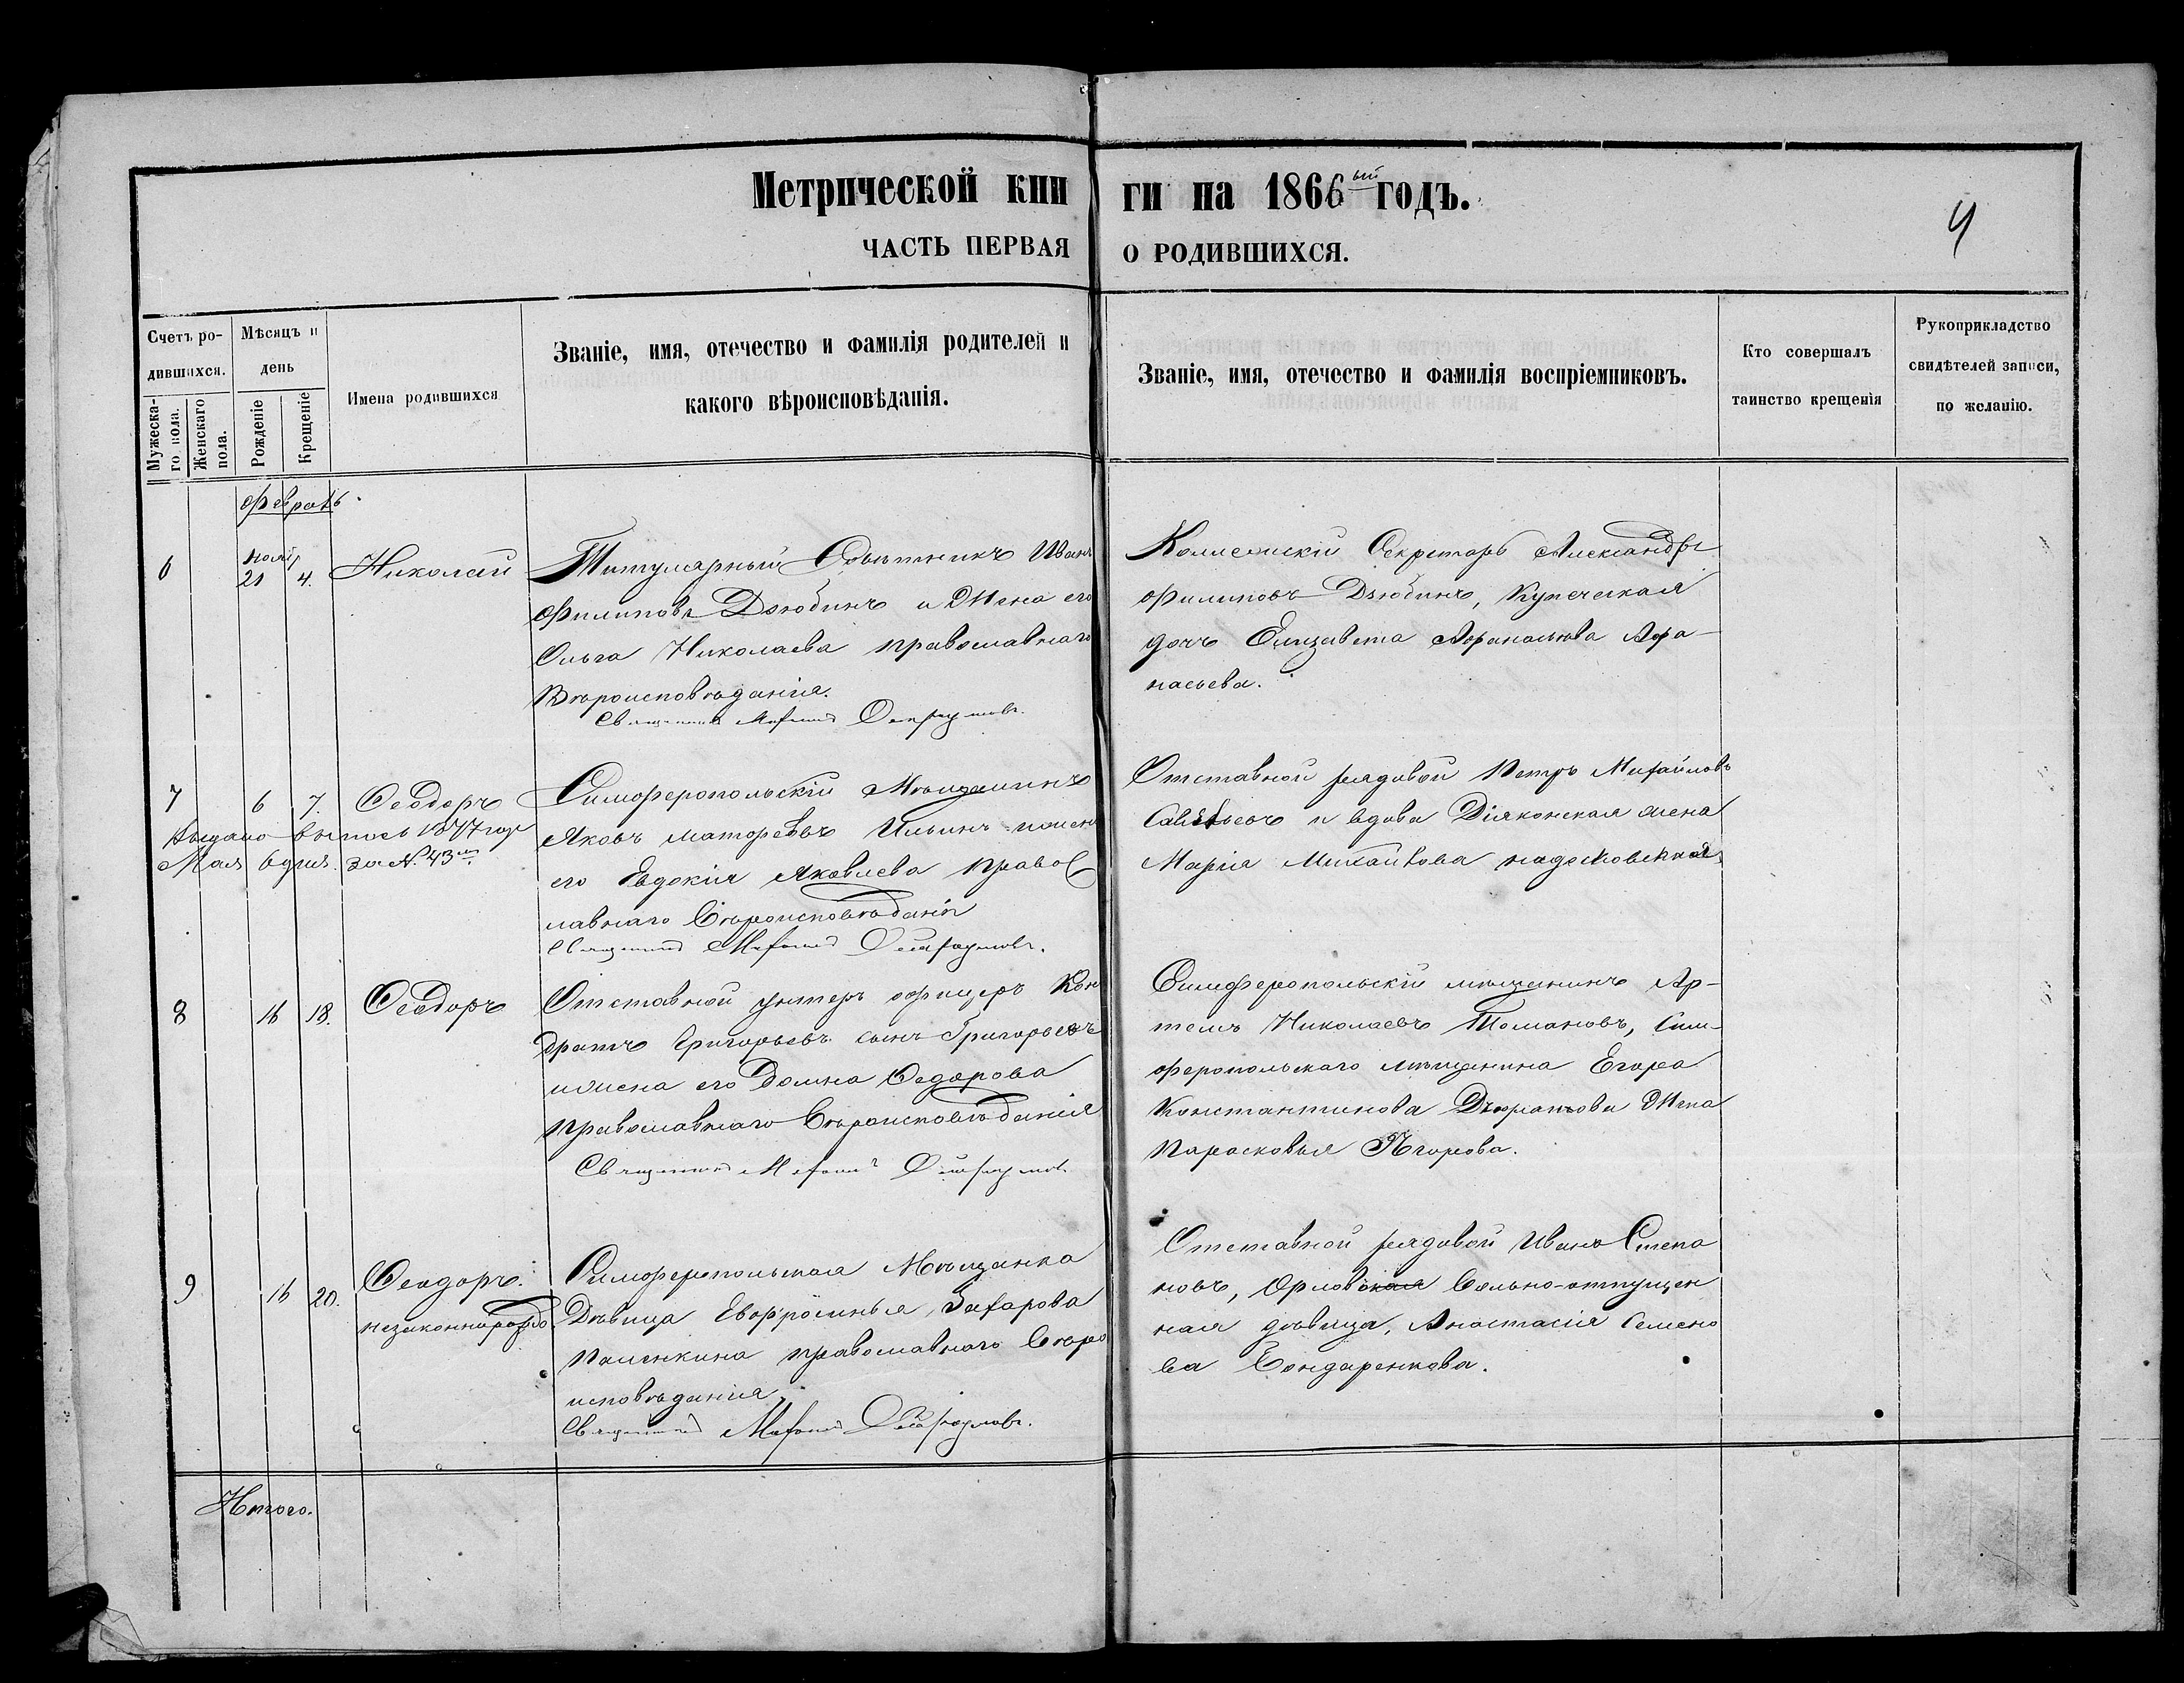 Метрической кни ги на 1866ый годъ.
4
ЧАСТЬ ПЕРВАЯ О РОДИВШИХСЯ.
Счетъ родившихся.
Мужескаго пола.
Женскаго пола.
Мѣсяцъ и день
Рожденіе
Крещеніе
Имена родившихся
Званіе, имя, отечество и фамилія родителей и
какого вѣроисповѣданія.
Званіе, имя, отечество и фамилія воспріемниковъ.
Кто совершалъ
таинство крещенія
Рукоприкладство
свидѣтелей записи,
по желанію.
Февраль
6
21 4. Николай
Титулярный Совѣтникъ Иванъ
Филиповъ Дзюбинъ и Жена его
Ольга Николаева православнаго
Вѣроисповѣданія.
Священникъ
Колежскій Секретарь Александръ
Филиповъ Дзюбинъ, Купеческая
дочь Елизавета Афанасьева Афа-
насьева.
7 6 7. Ѳеодоръ
Выдано выпись 1877 года
Мая 6 дня за №. 43
Симферопольскій Мѣщанинъ
Яковъ Ильинъ и жена
его Евдокія Яковлева Правос
лавнаго Вѣроисповѣданія
Священникъ
Отставной рядовой Петръ Михайловъ
Савельевъ и вдова Діяконская жена
Марія Михайлова
8 16 18. Ѳеодоръ
Отставной унтеръ офицеръ Кон
дратъ Григорьевъ сынъ Григорьевъ
и жена его Домна Ѳедорова
Православнаго Вѣроисповѣданія
Священникъ
Симферопольскій мѣщанинъ Ар-
темъ Николаевъ Томановъ, Сим-
феропольскаго мѣщанина Егора
Константинова Жена
Парасковья Егорова.
9 16 20. Ѳеодоръ.
незаконнорожд.
Симферопольская Мѣщанка
Дѣвица Евфросинья Захарова
Паленкина православнаго Вѣро
исповѣданія
Священникъ
Отставной рядовой Иванъ Степа
новъ, Орловская Вольно-отпущен
ная дѣвица, Анастасія Семено
ва Бондаренкова.
Итого.